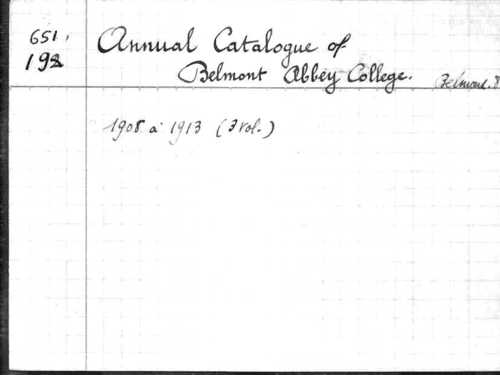 651.
192
Annual Catalogue of
Belmont Abbey College.
Belmont.
1908 à 1913 (3 vol.)